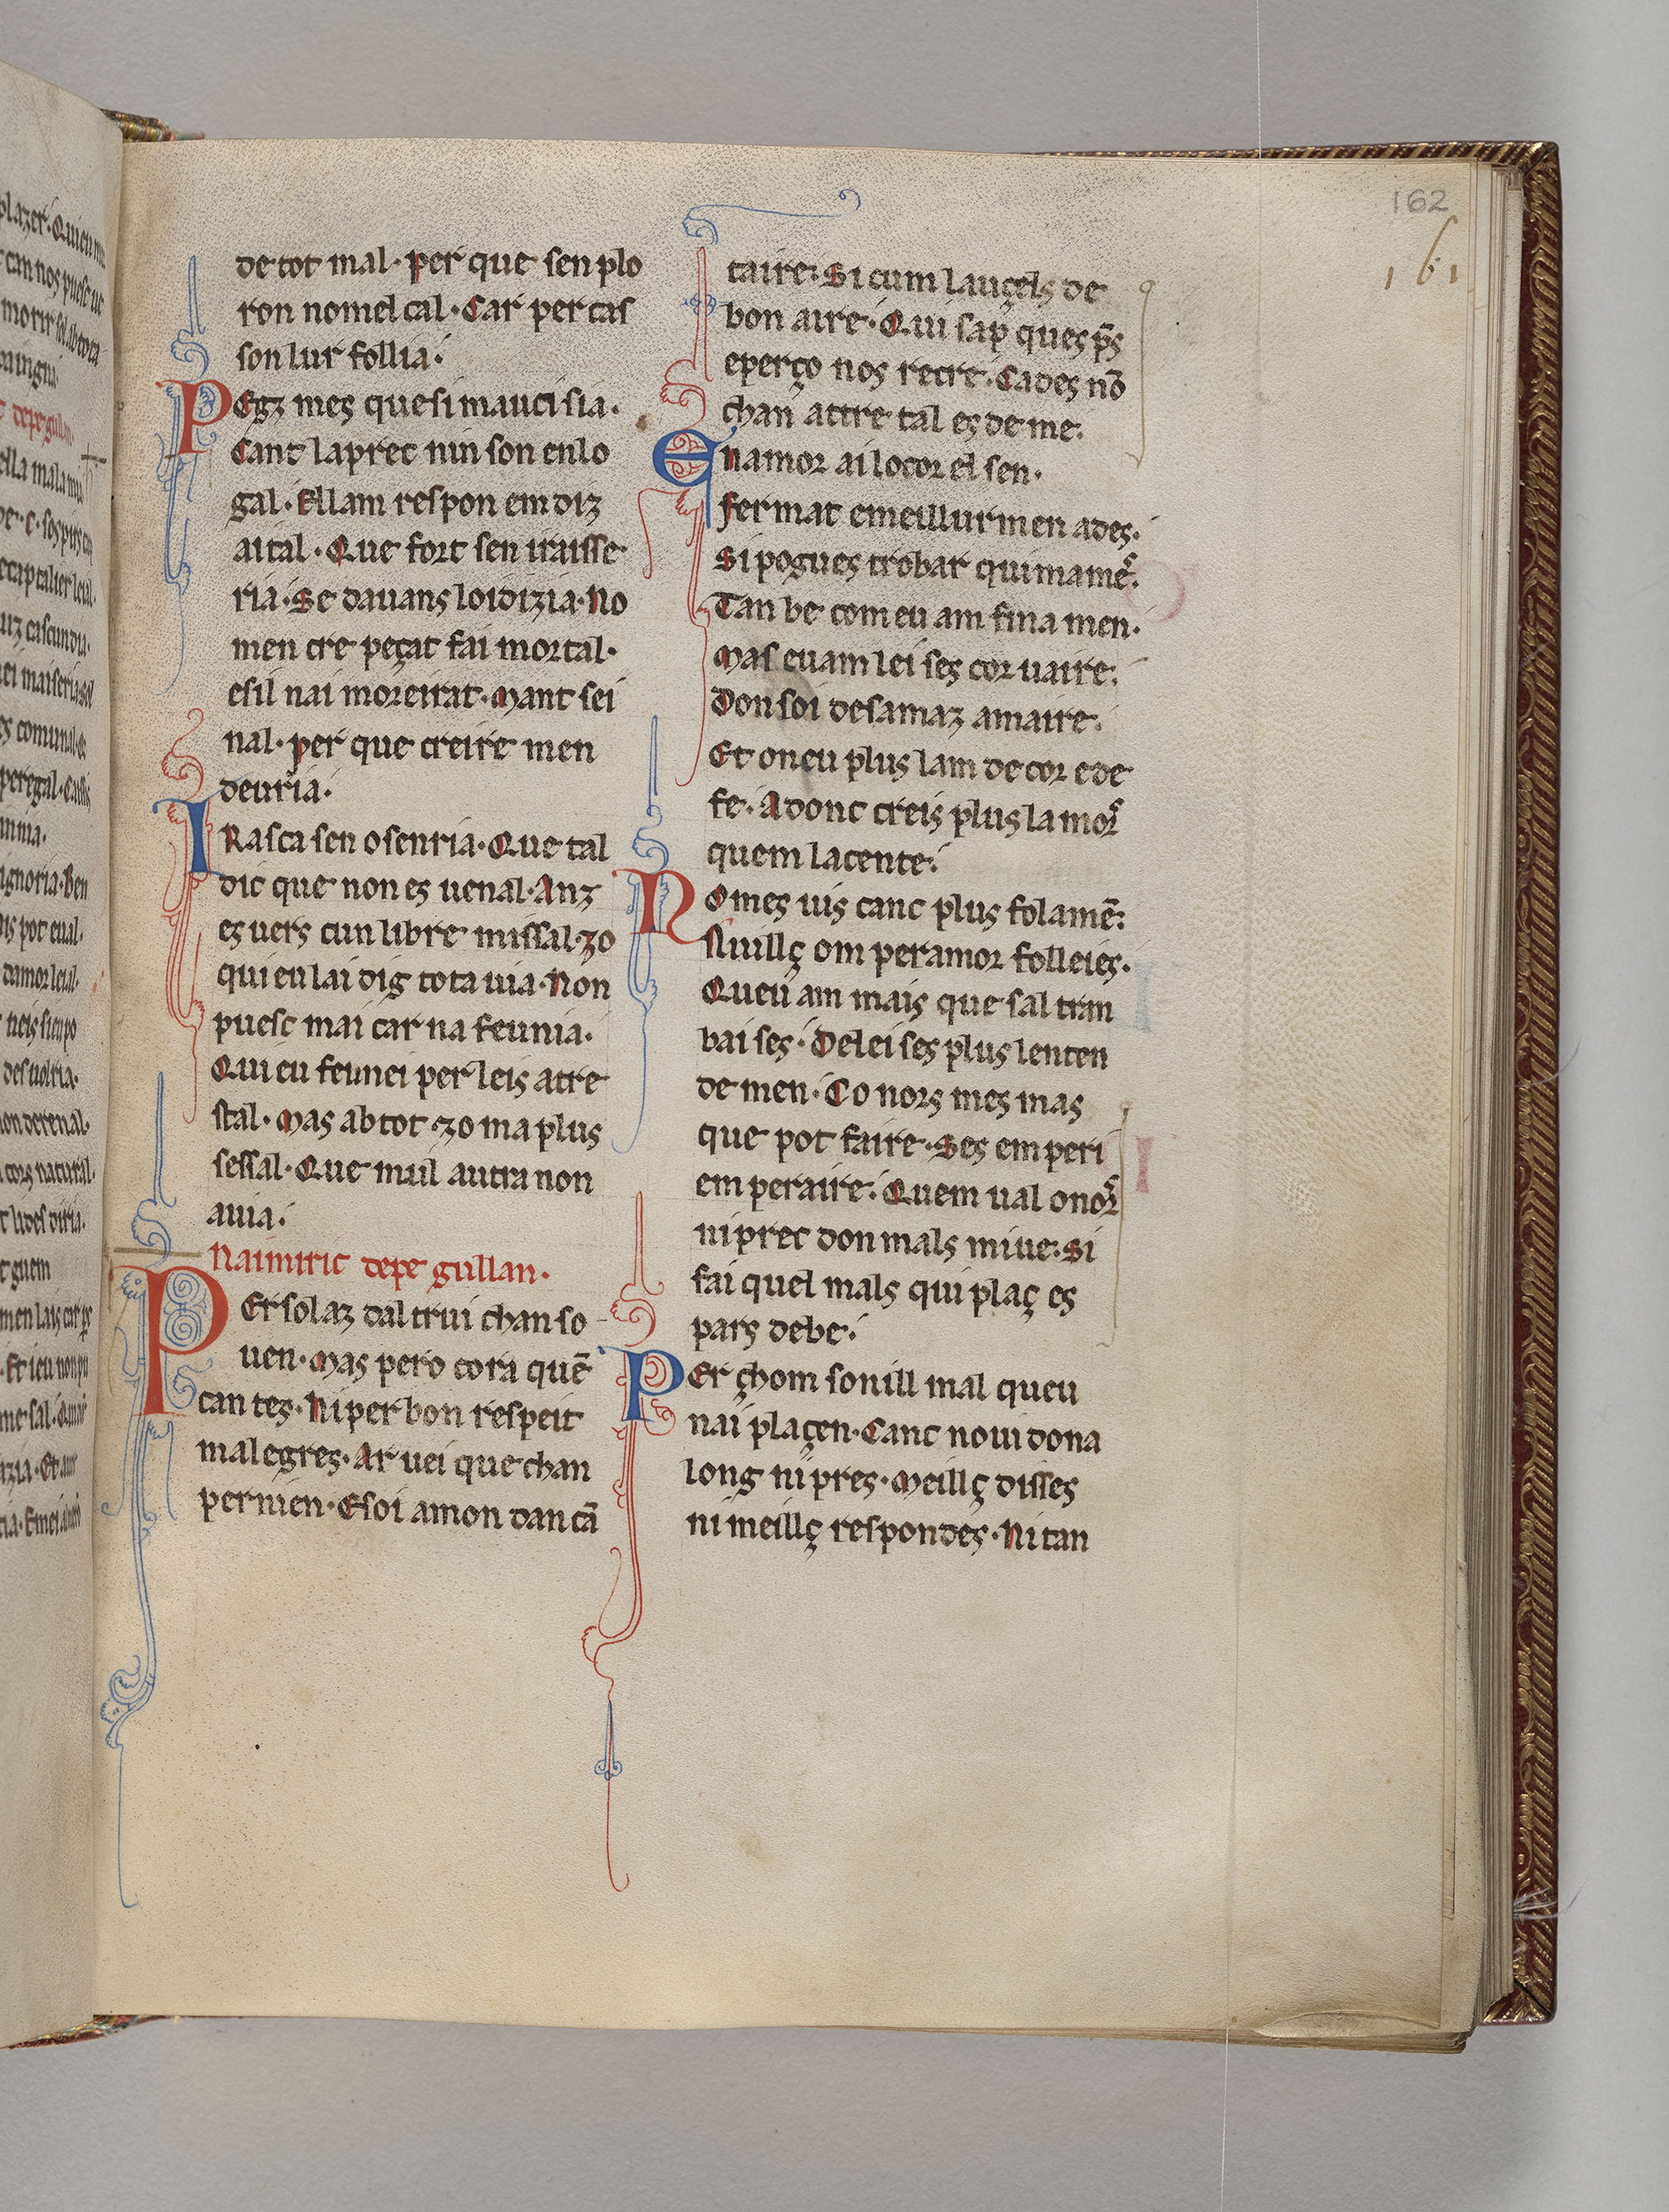 162
161
de tot mal· per que sen plo
ron nomel cal· Car per cas
son lur follia·
PEgz mes que si mauci sia·
Cant la prec nin son en lo
gal· Ellam respon em diz
aital· Que fort sen iraisse
ria· Se davans lo i dizia· No
men cre peçat fai mortal·
e sil nai moz eirat· Mant sei
nal· per que creire men
deuria·
IRasca sen o sen ria· Que tal
dic que non es uenal· Anz
es uers cun libre missal· zo
qui eu lai dig tota uia· Non
puesc mai car na feunia·
Qui eu feunei per leis atre
stal· Mas ab tot zo ma plus
sessal· Que mil autra non
auia·
Naimiric depe gullan·
PEr solaz dal trui chan so
uen· Mas pero cora quē
can tes· Ni per bon respeit
malegres· Ar uei que chan
per nien· E soi amon dan cā
taire· Si cum lauçels de
bon aire· Qui sap ques p̄s
e perço nos recre· Cades nō
chan attre tal es de me·
En amor ai lo cor el sen·
fermat e meillurmen ades·
Si pogues trobar qui mames·
Tan be com eu am fina men·
Mas eu am lei ses cor uaire·
Don soi desamaz amaire·
Et on eu plus lam de cor e de
fe· Adonc creis plus lamor
quem lacente·
NO mes uis canc plus folamē·
Nuillç om per amor folleies·
Queu am mais que sal tran
bai ses· De lei ses plus lenten
de men· Co nors mes mas
que pot faire· Ses emperi
em peraire· Quem ual onor
ni prec don mals miue· Si
fai quel mals qui plaç es
pars debe·
PEr çhom sonill mal queu
nai plaçen· Canc no ui dona
long ni pres· Meillç disses
ni meillç respondes· Ni tan